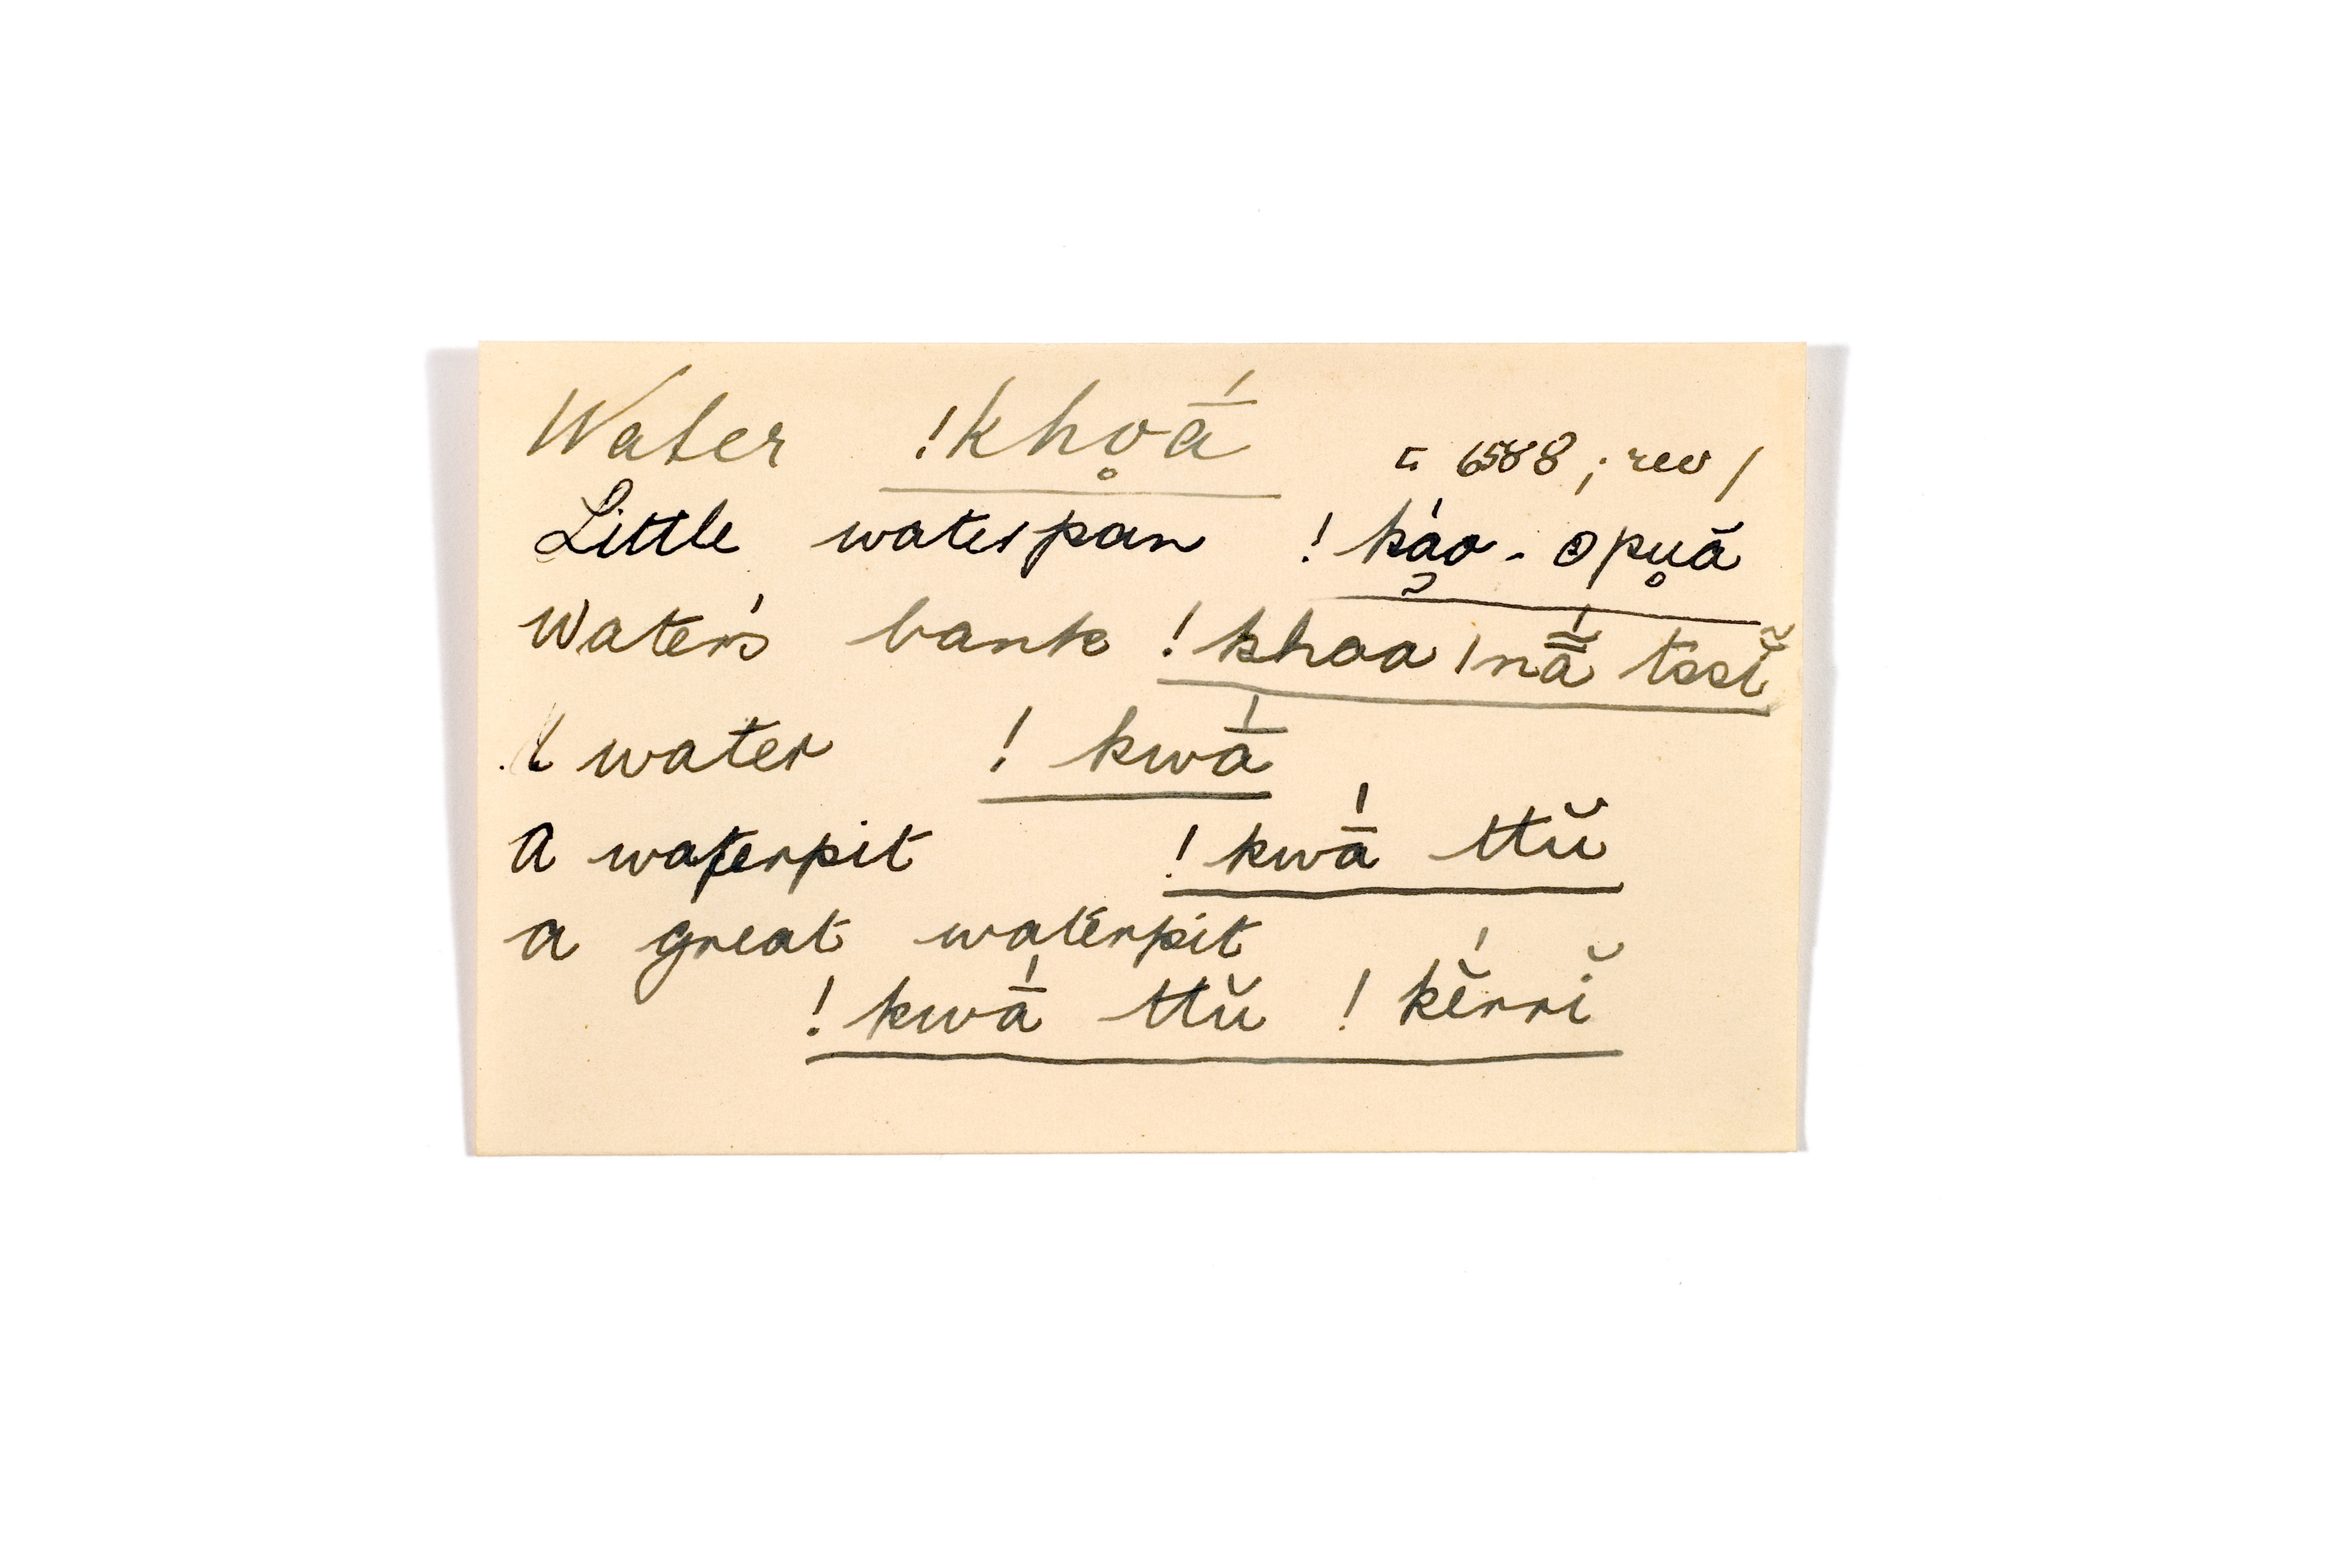 Water !kho̥ā́
⊏ 6588 ; rev /
Little waterspan !k̓áo - ʘpu̥ā
Water's bank !khoa |nā̃́ tssĩ̆
water !kwā́
A waterpit !kwā́ ttŭ
a great waterpit
!kwā́ ttŭ !kĕ́rrĭ